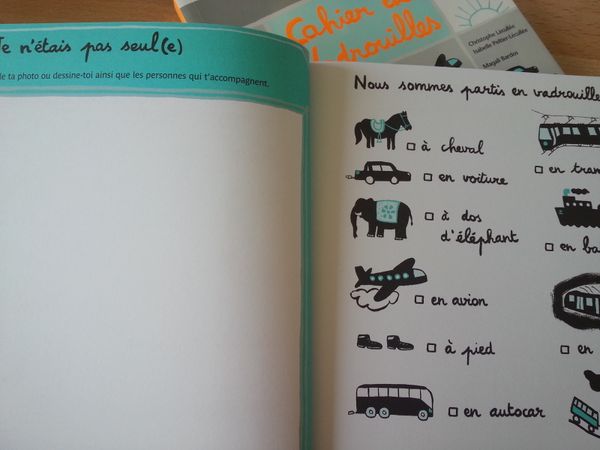 Cahier de
vadrouilles
Christophe Lecullée
Isabelle Peltier-Lecullée
Magali Bardos
Je n'étais pas seul(e)
le ta photo ou dessine-toi ainsi que les personnes qui t'accompagnent.
Nous sommes partis en vadrouille
à cheval
en voiture
à dos
d'éléphant
en avion
à pied
en autocar
en tram
en ba
en